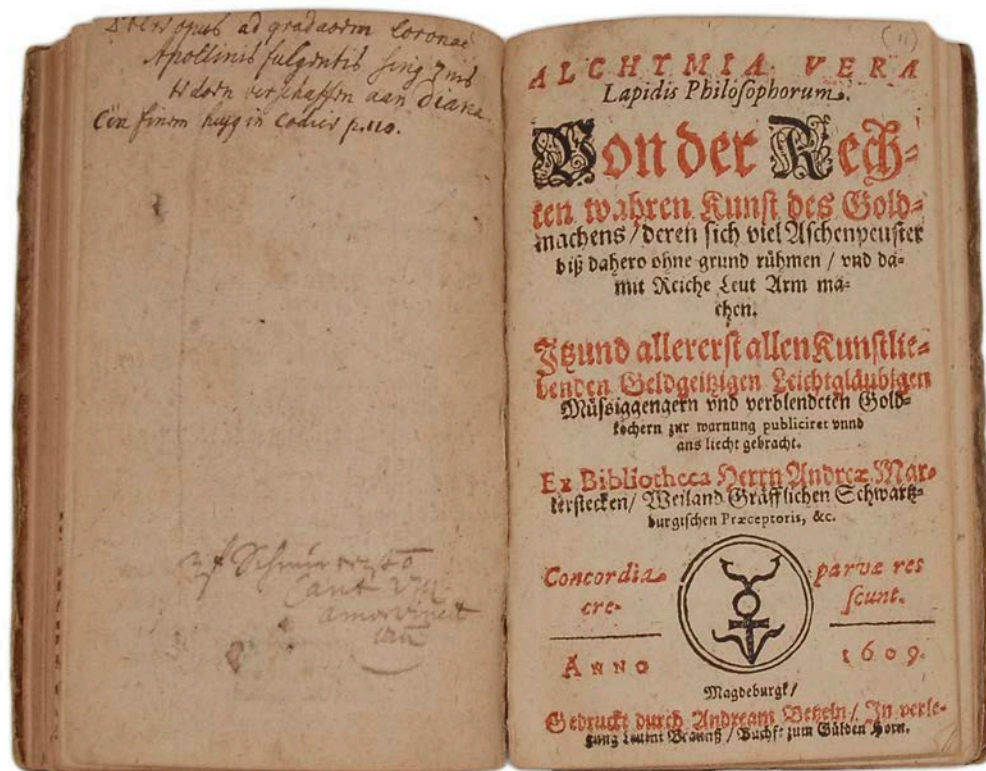 opus ad graduorum Coronae
Apollinis fulgentis
verschaffen aan Diana
finem in Codice p. 110.
amor vincit
(11)
ALCHYMIA VERA
Lapidis Philosophorum.
Von der Rech⸗
ten wahren Kunst des Gold⸗
machens / deren sich viel Aschenpeuster
biß dahero ohne grund rühmen / vnd da⸗
mit Reiche Leut Arm ma⸗
chen.
Itzund allererst allen Kunstlie⸗
benden Geldgeitzigen Leichtgläubigen
Müssiggengern vnd verblendeten Gold⸗
kochern zur warnung publiciret vnnd
ans liecht gebracht.
Ex Bibliotheca Herrn Andreæ Mar⸗
terstecken / Weiland Gräfflichen Schwartz⸗
burgischen Præceptoris, &c.
Concordia parvæ res
cre- scunt.
ANNO 1609.
Magdeburgk /
Gedruckt durch Andream Betzeln / In verle⸗
gung Braunß / Buchf. zum Gülden Horn.